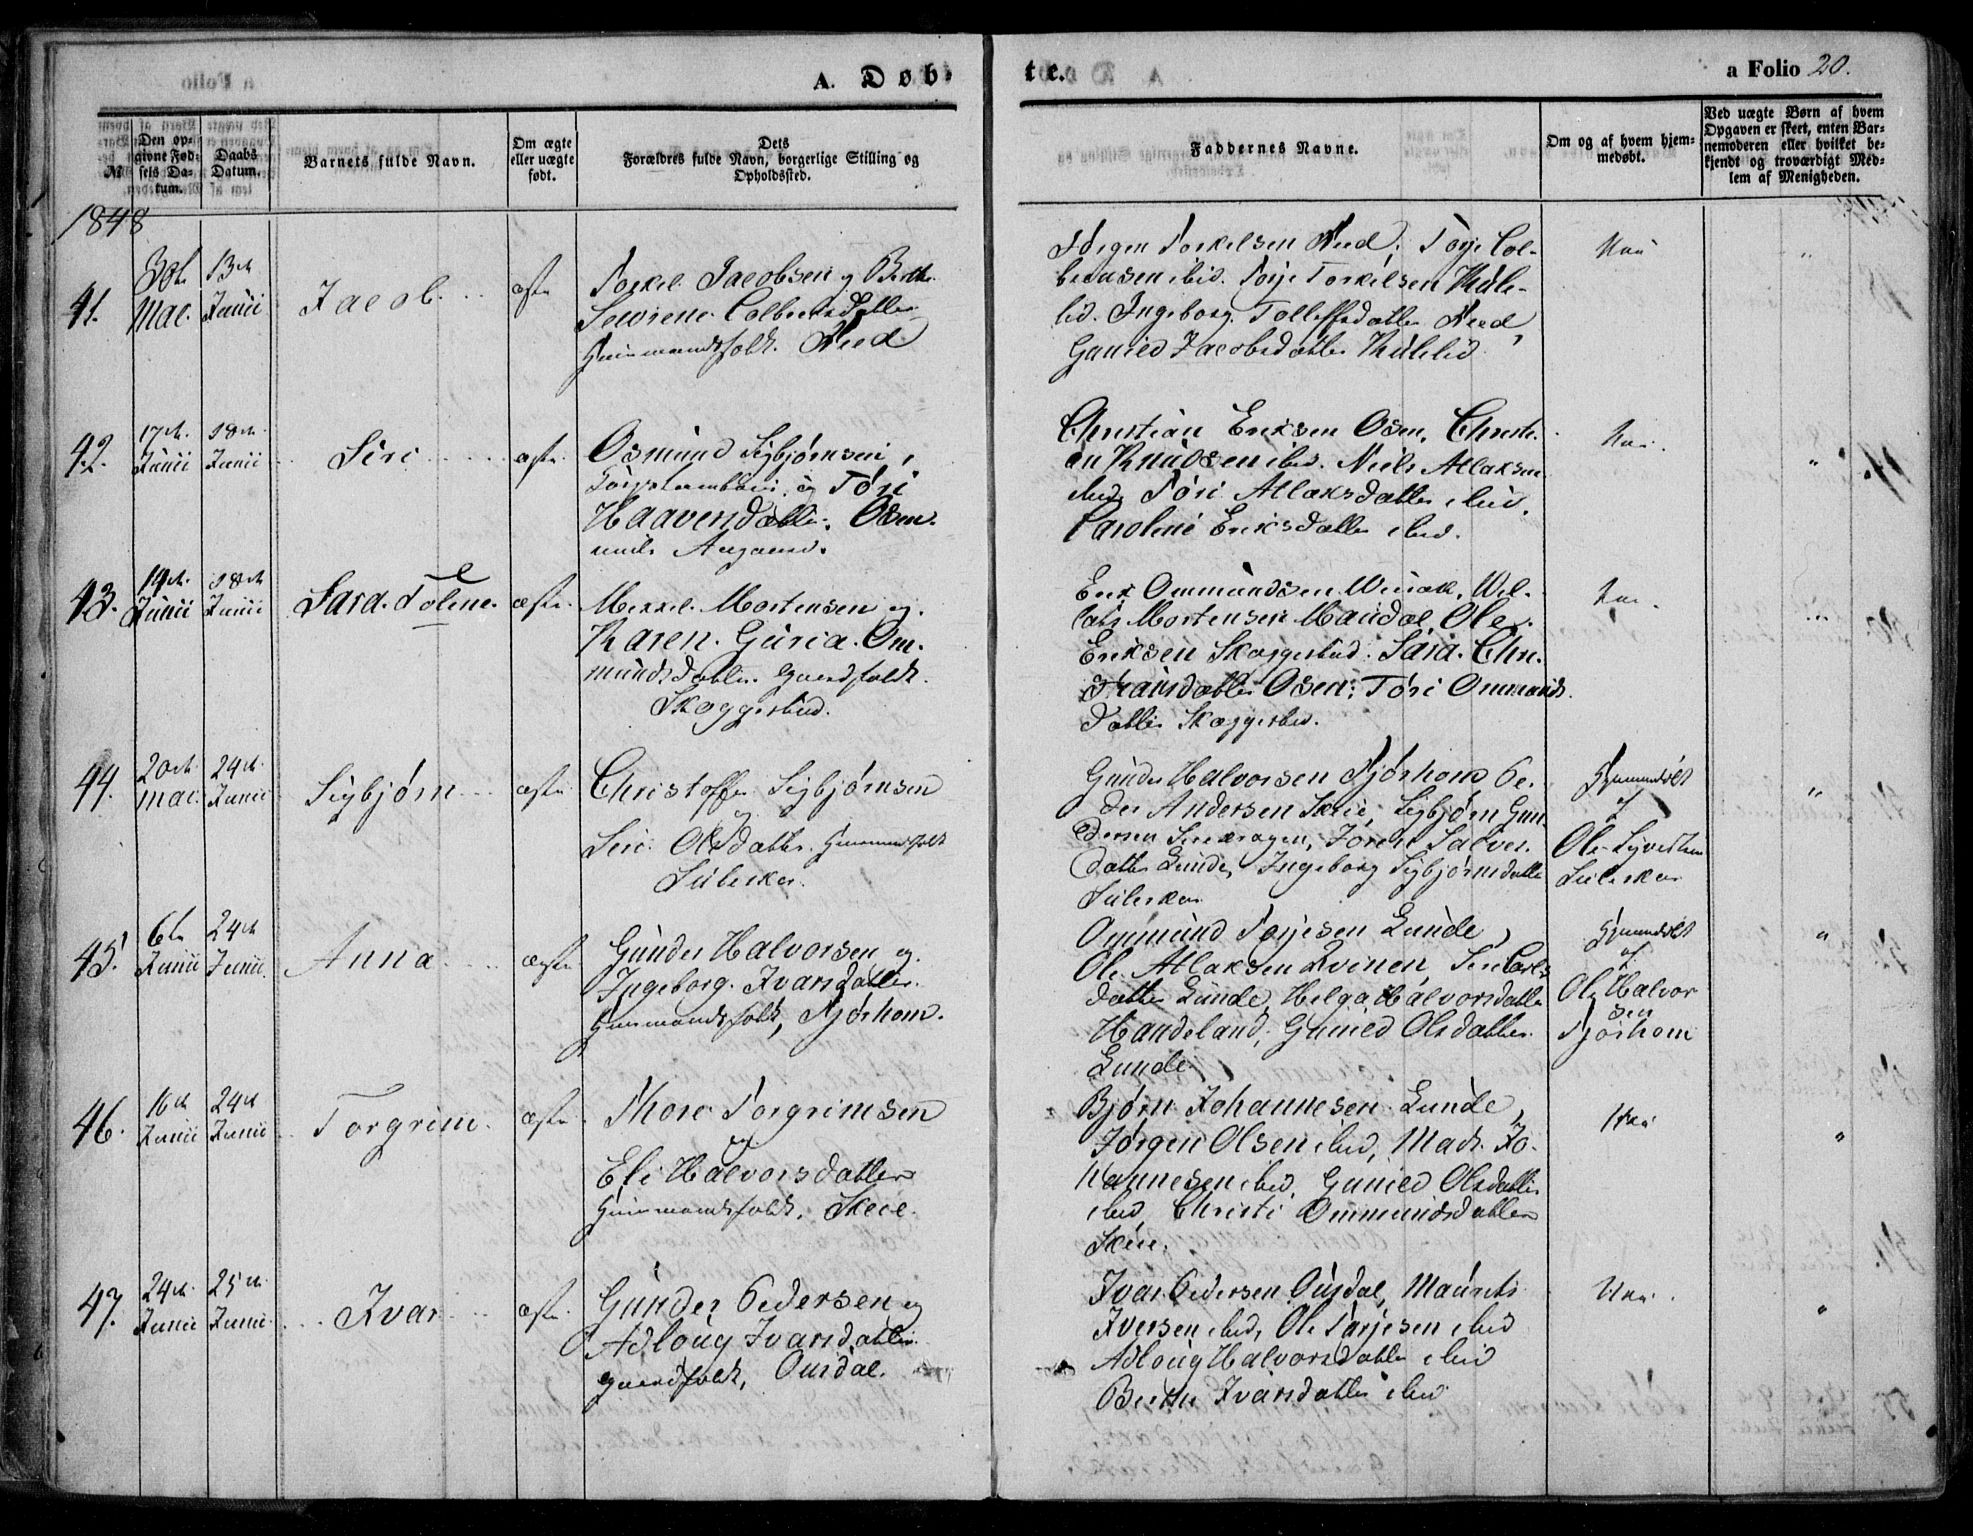 A. Døb-
te.
a Folio 20.
№
Den op-
givne Fød-
sels Da-
tum.
Daabs
Datum.
Barnets fulde Navn.
Om ægte
eller uægte
født.
Dets
Forældres fulde Navn, borgerlige Stilling og
Opholdssted.
Faddernes Navne.
Om og af hvem hjem-
medøbt.
Ved uægte Børn af hvem
Opgaven er skeet, enten Bar-
nemoderen eller hvilket be-
kjendt og troværdigt Med-
lem af Menigheden.
1848
41.
30te
Mai.
13de
Junii
Jacob.
ægte
Torkel Jacobsen og Berthe
Sewrene Colbensdatter
Huusmandsfolk.
Jørgen Torkelsen Torje Col-
bensen ibid. Torje Torkelsen
Ingeborg Tolleffsdatter
Gunild Jacobsdatter
Nei
"
42.
17de
Junii
18de
Junii
Siri
ægte
Osmund Sigbjørnsen,
og Töri
Haavensdatter. Osen.
Christian Eriksen Osen, Christi-
an Knudsen ibid. Niels Atlaksen
ibid. Töri Atlaksdatter ibid.
Caroline Eriksdatter ibid.
Nei
"
43.
14de
Junii
18de
Junii
Sara Toline
ægte
Mikkel Mortensen og
Karen Guria Om-
mundsdatter. Gaardfolk.
Skoggestad.
Erik Ommundsen
Mortensen Ole
Eriksen Skoggestad. Sara Chri-
stiansdatter Osen, Töri Ommunds-
datter Skoggestad.
Nei
"
44.
20de
Mai
24de
Junii
Sigbjørn
ægte
Christoffer Sigbjørnsen
og
Siri Olsdatter. Huusmandsfolk
Suleskar.
Gunder Halvorsen Fjørhom Pe-
der Andersen Skeie, Sigbjørn Gun-
dersen Joren Salves-
datter Lunde, Ingeborg Sigbjørnsdatter
Suleskar
Hjemmedøbt
af
Ole
Suleskar
"
45.
6te
Junii
24de
Junii
Anna
ægte
Gunder Halvorsen og
Ingeborg Ivarsdatter
Huusmandsfolk, Fjørhom.
Ommund Torjesen Lunde,
Ole Atlaksen Kvinen, Siri Carls-
datter Lunde, Helga Halvorsdatter
Handeland, Gunild Olsdatter
Lunde
Hjemmedøbt
af
Ole Halvor
sen
Fjørhom
"
46.
16de
Junii
24de
Junii
Torgrim
ægte
Thore Torgrimsen
og
Eli Halvorsdatter
Huusmandsfolk, Skeie.
Bjørn Johannesen Lunde,
Jørgen Olsen ibid, Mads Jo-
hannesen ibid, Gunild Olsdatter
ibid, Christi Ommundsdatter
Skeie.
Nei
"
47.
24de
Junii
25de
Junii
Ivar
ægte
Gunder Pedersen og
Adloug Ivarsdatter
Gaardfolk, Ousdal.
Ivar Pedersen Ousdal, Maurits
Iversen ibid, Ole Torjesen ibid
Adloug Halvorsdatter ibid
Berthe Ivarsdatter ibid
Nei
"